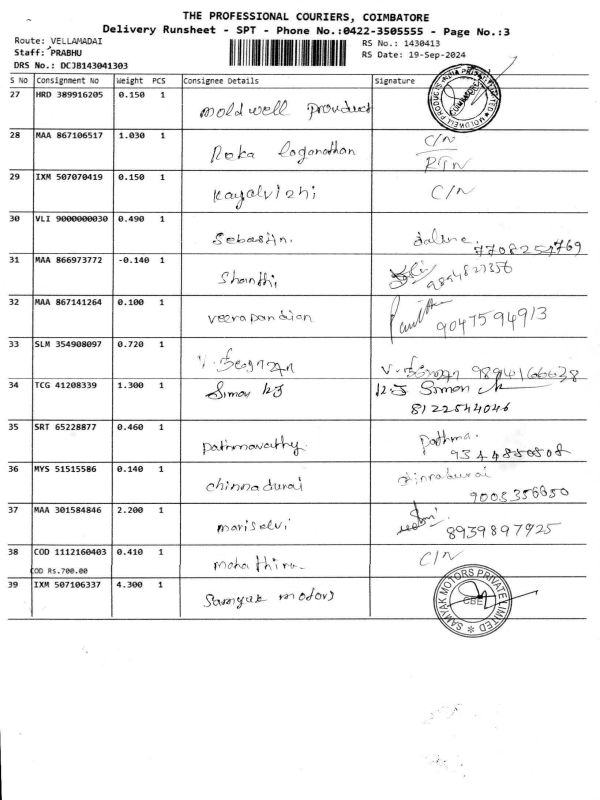 THE PROFESSIONAL COURIERS, COIMBATORE
Delivery Runsheet - SPT - Phone No.:0422-3505555 - Page No.:3
Route: VELLAMADAI
RS No.: 1430413
Staff: PRABHU
RS Date: 19-Sep-2024
DRS No.: DCJB143041303
S No Consignment No Weight PCS Consignee Details Signature
27 HRD 389916205 0.150 1
moldwell product
MOLDWELL PRODUCTS INDIA PRIVATE LIMITED
COIMBATORE
28 MAA 867106517 1.030 1
C/N
Roka loganathan
RTN
29 IXM 507070419 0.150 1
Kayalvizhi C/N
30 VLI 9000000030 0.490 1
Sebastin.
7708254769
31 MAA 866973772 -0.140 1
Shanthi 9894827356
32 MAA 867141264 0.100 1
veerapandian 9047594913
33 SLM 354908097 0.720 1
V.
V. 9894166638
34 TCG 41208339 1.300 1
Simon KJ K.J Simon
8122544046
35 SRT 65228877 0.460 1
Pathmavathy. pathma.
9344850808
36 MYS 51515586 0.140 1
chinnadurai chinnadurai
9003356650
37 MAA 301584846 2.200 1
mariselvi 8939897925
38 COD 1112160403 0.410 1
C/N
COD Rs.700.00
39 IXM 507106337 4.300 1
Samyak motors
SAMYAK MOTORS PRIVATE LIMITED
CBE